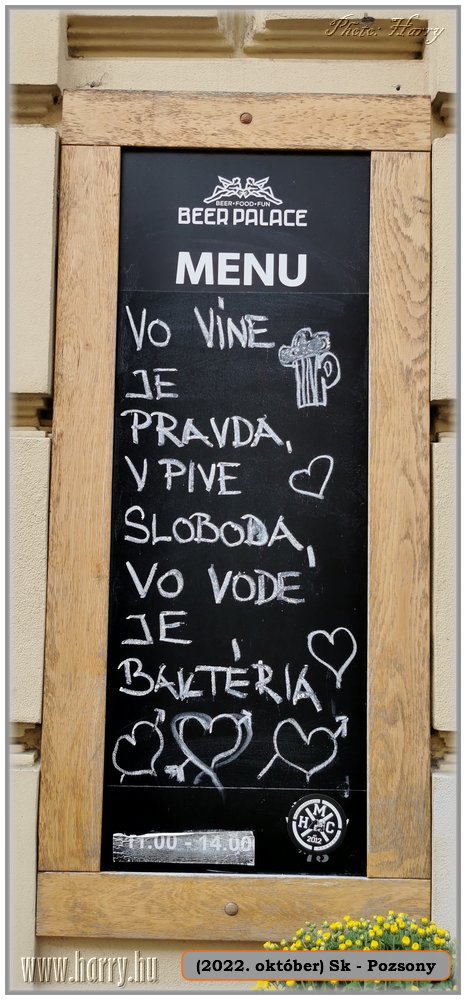 Photo: Harry
BEER•FOOD•FUN
BEER PALACE
MENU
VO VÍNE
JE
PRAVDA,
V PIVE
SLOBODA,
VO VODE
JE
BAKTÉRIA
11.00 - 14.00
H M C
2012
www.harry.hu
(2022. október) Sk - Pozsony